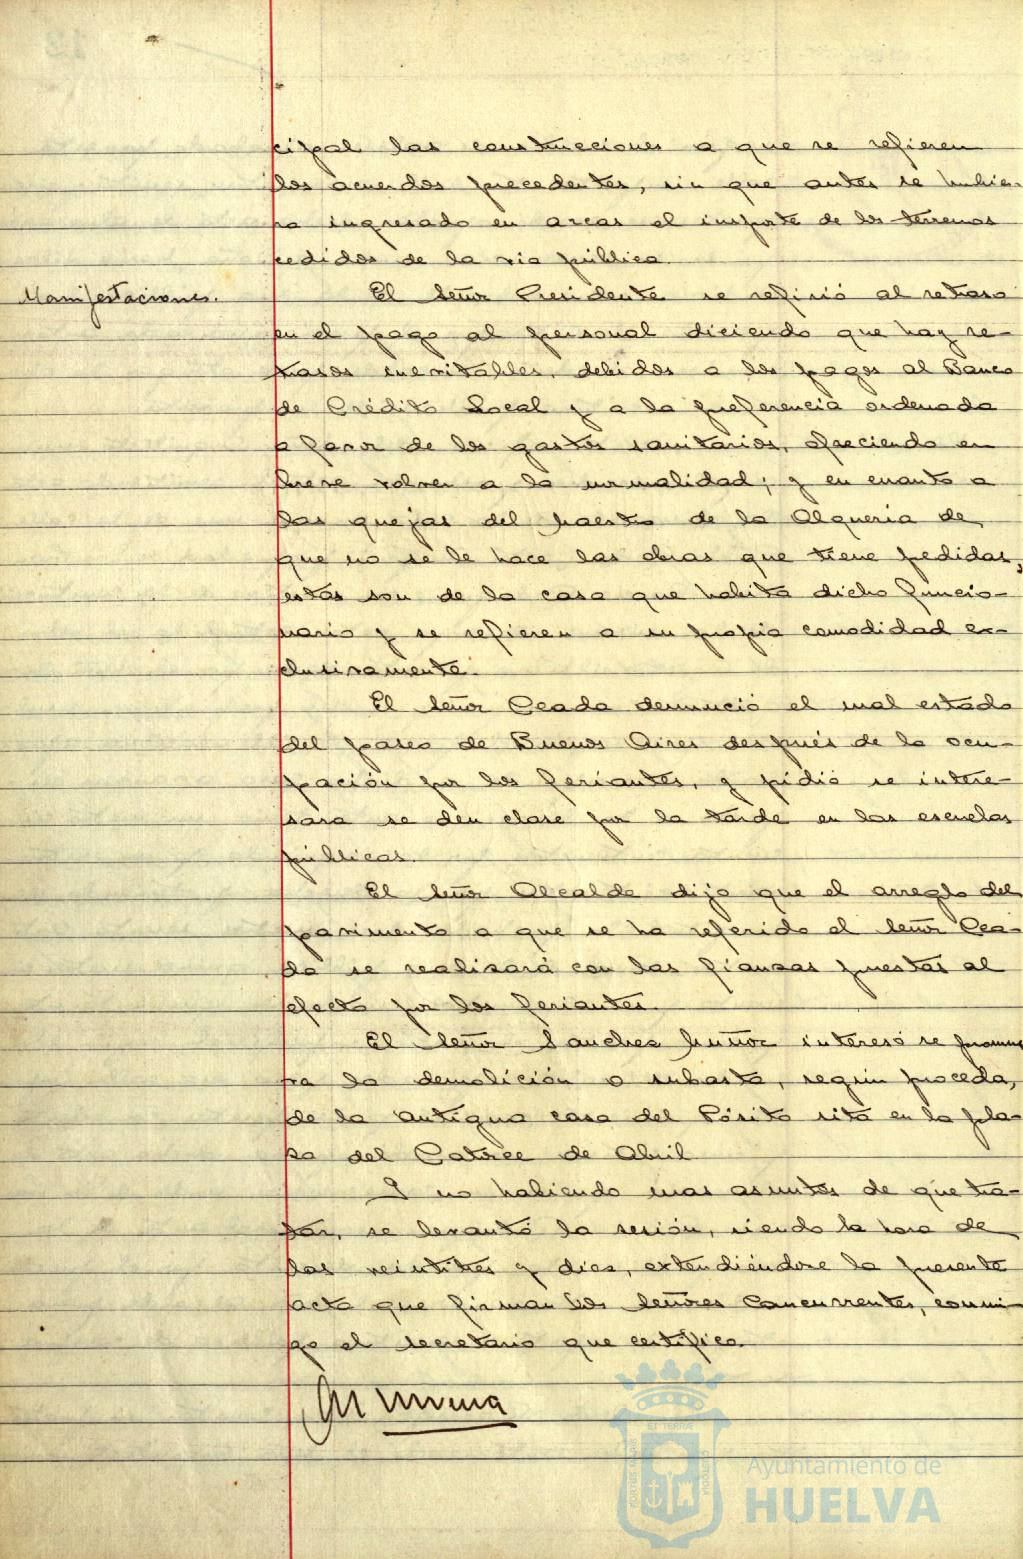 cipal las construcciones a que se refieren
los acuerdos precedentes, sin que antes se hubie-
ra ingresado en arcas el importe de los terrenos
cedidos de la via pública.
Manifestaciones.
El Señor Presidente se refirió al retraso
en el pago al personal diciendo que hay re-
trasos inevitables, debidos a los pagos al Banco
de Crédito Local y a la preferencia ordenada
a favor de los gastos sanitarios, ofreciendo en
breve volver a la normalidad; y en cuanto a
las quejas del Maestro de la Alqueria de
que no se le hace las obras que tiene pedidas,
estas son de la casa que habita dicho funcio-
nario y se refieren a su propia comodidad ex-
clusivamente.
El Señor Ceada denunció el mal estado
del paseo de Buenos Aires después de la ocu-
pación por los feriantes, y pidió se intere-
sara se den clase por la tarde en las escuelas
públicas.
El Señor Alcalde dijo que el arreglo del
pavimento a que se ha referido el Señor Cea-
da se realisará con las fianzas puestas al
efecto por los feriantes.
El Señor Sanchez Muñoz interesó se promue
va la demolición o subasta, según proceda,
de la antigua casa del Pósito sita en la pla-
za del Catorce de Abril
Y no habiendo mas asuntos de que tra-
tar, se levantó la sesión, siendo la hora de
las veintitres y diez, extendiéndose la presente
acta que firman los Señores Concurrentes, conmi-
go el secretario que certifico.
Ayuntamiento de
HUELVA